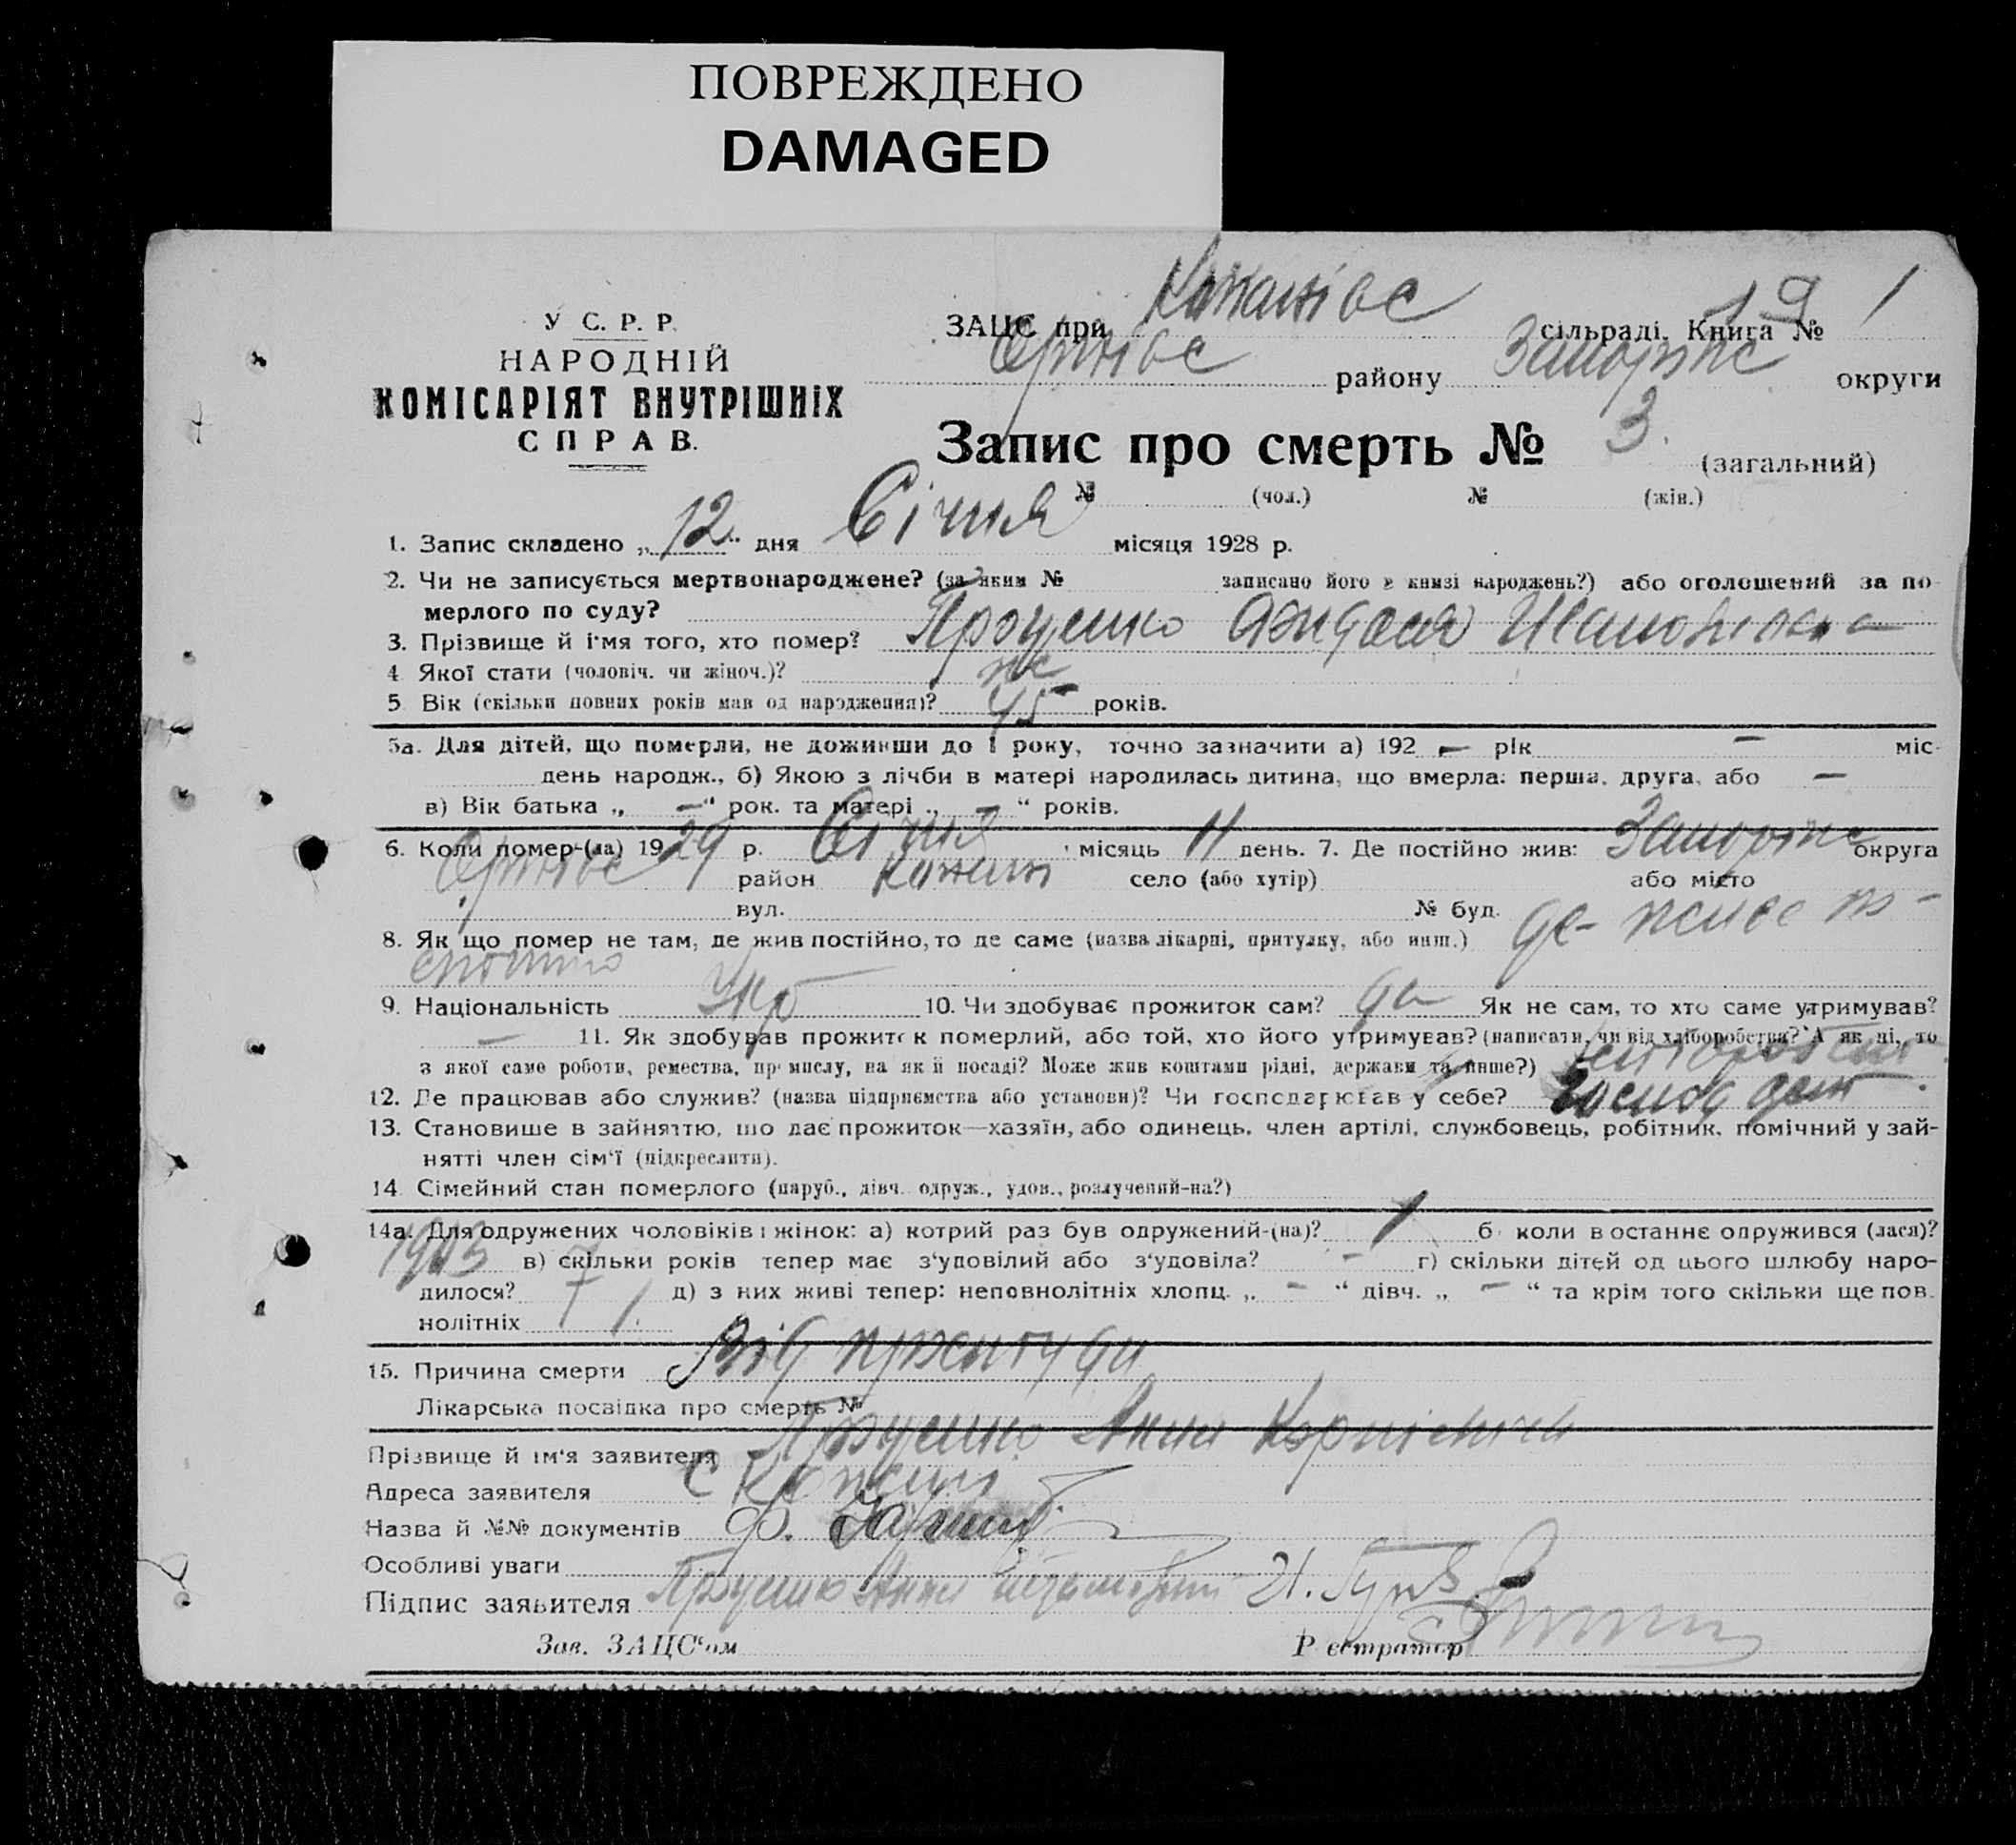 ПОВРЕЖДЕНО
DAMAGED
У С. Р. Р.
НАРОДНІЙ
КОМІСАРІЯТ ВНУТРІШНІХ
СПРАВ.
ЗАЦС при сільраді. Книга № 1
району Запоріж округи
Запис про смерть № 3 (загальний)
№ (чол.) № (жін.)
1. Запис складено „12" дня Січня місяця 1928 р.
2. Чи не записується мертвонароджене? (за яким № записано його в книзі народжень?) або оголошений за по-
мерлого по суду?
3. Прізвище й ім'я того, хто помер? Проценко
4. Якої стати (чоловіч. чи жіноч.)? ж
5. Вік (скільки повних років мав од народження)? 45 років.
5а. Для дітей, що померли, не доживши до 1 року, точно зазначити а) 192 – рік – міс-
день народж., б) Якою з лічби в матері народилась дитина, що вмерла: перша, друга, або –
в) Вік батька „ –" рок. та матері „ – " років.
6. Коли помер-(ла) 1929 р. Січня місяць 11 день. 7. Де постійно жив: Запоріж округа
район село (або хутір) або місто
вул. № буд.
8. Як що помер не там, де жив постійно, то де саме (назва лікарні, притулку, або инш.) де живе по-
стійно
9. Національність Укр 10. Чи здобуває прожиток сам? да Як не сам, то хто саме утримував?
– 11. Як здобував прожиток померлий, або той, хто його утримував? (написати, чи від хліборобства? А як ні, то
з якої саме роботи, ремества, промислу, на якій посаді? Може жив коштами рідні, держави та инше?)
12. Де працював або служив? (назва підприємства або установи)? Чи господарював у себе?
13. Становище в зайняттю, що дає прожиток—хазяїн, або одинець, член артілі, службовець, робітник, помічний у зай-
нятті член сім'ї (підкреслити).
14. Сімейний стан померлого (паруб., дівч. одруж., удов., розлучений-на?)
14а. Для одружених чоловіків і жінок: а) котрий раз був одружений-(на)? 1 б) коли востаннє одружився (лася)?
1903 в) скільки років тепер має з'уповілий або з'удовіла? – г) скільки дітей од цього шлюбу наро-
дилося? 7 д) з них живі тепер: неповнолітніх хлопц. „ – " дівч. „ – " та крім того скільки ще пов.
нолітніх
15. Причина смерти Від простуди
Лікарська посвідка про смерть №
Прізвище й ім'я заявителя Проценко Анна
Адреса заявителя с
Назва й №№ документів
Особливі уваги
Підпис заявителя Проценко Анна
Зав. ЗАЦС'ом Реєстратор